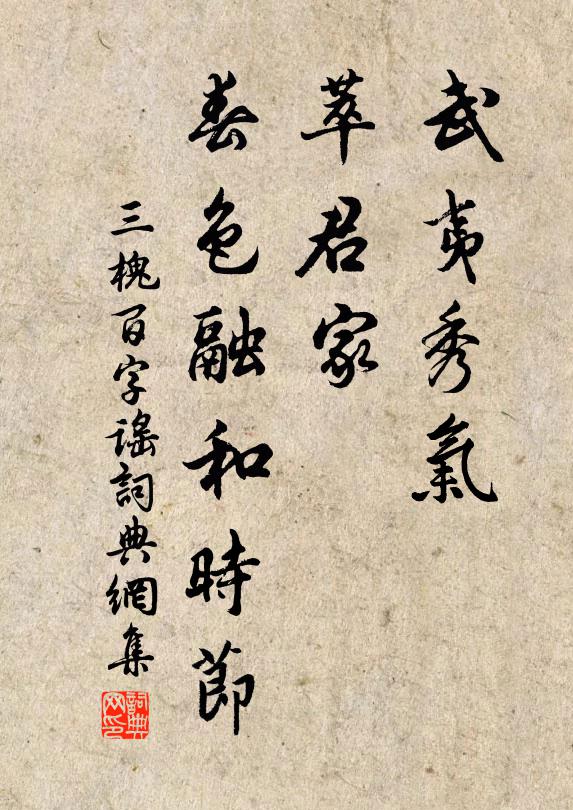 武夷秀氣
萃君家
春色融和時節
三槐百字謠詞典網集
詞典网印